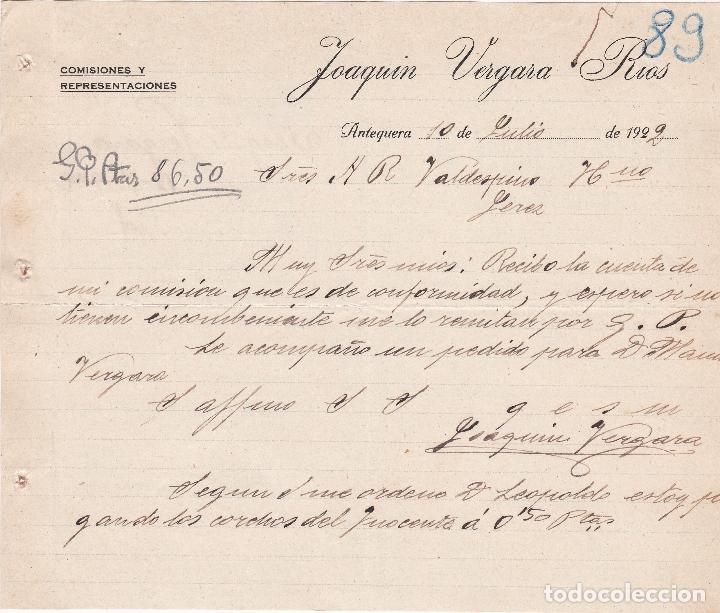 89
Joaquin Vergara Rios
COMISIONES Y
REPRESENTACIONES
Antequera 10 de Julio de 1922
G.P. Ptas 86,50
Sres A R Valdespino Hno
Jerez
Muy Sres mios: Recibo la cuenta de
mi comision que es de conformidad, y espero si no
tienen encombeniente me lo remitan por G. P.
Le acompaño un pedido para D Manu
Vergara
S affmo S S q e s m
Joaquin Vergara
Segun me ordeno D Leopoldo estoy pa
gando los corchos del Inocente á 0'50 Ptas
todocoleccion